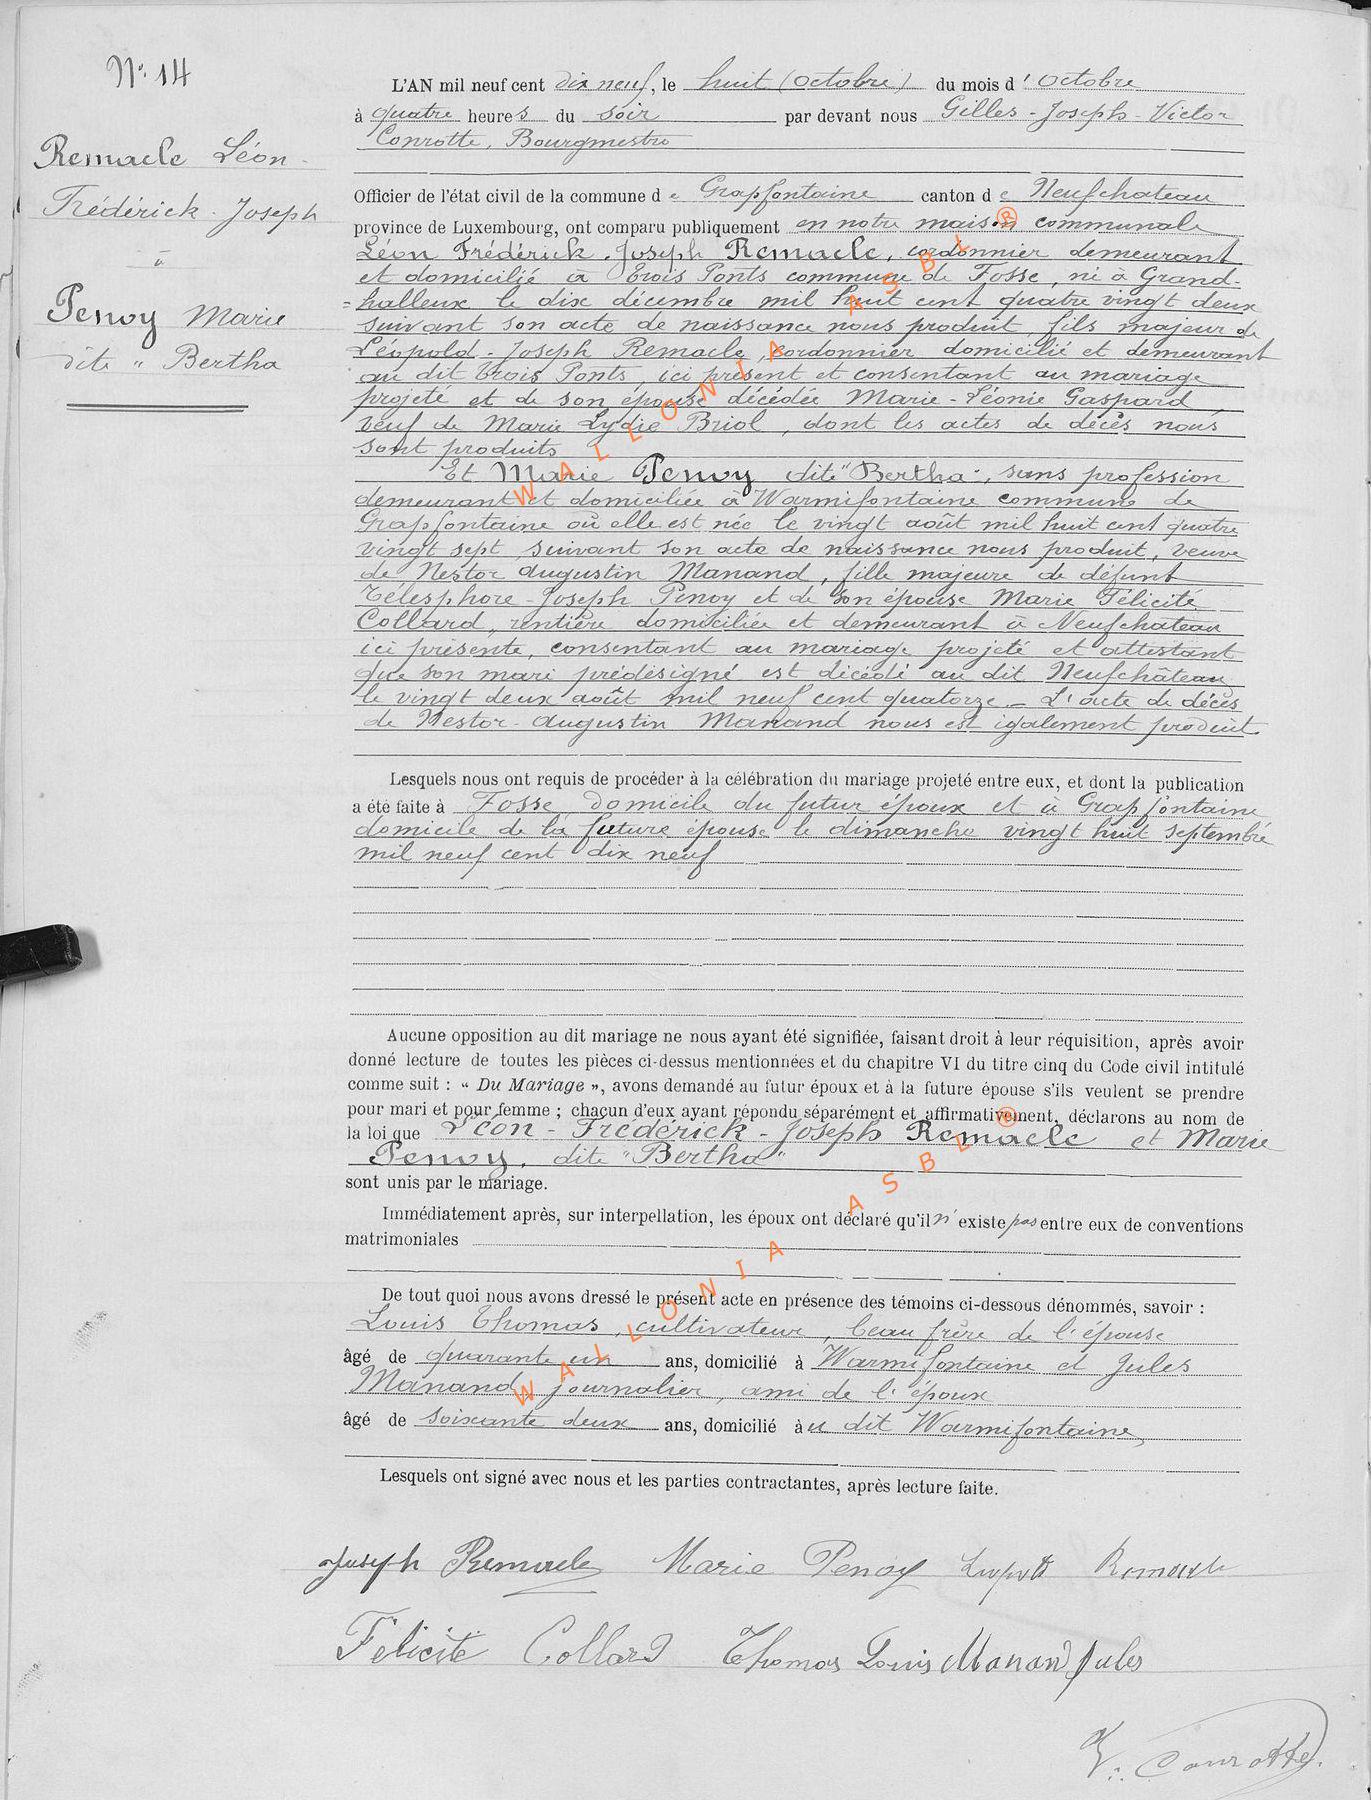 N° 14
Remacle Léon -
Frédérick - Joseph
à
Penoy Marie
dite " Bertha
L'AN mil neuf cent dix neuf, le huit (octobre) du mois d' octobre
à quatre heures du soir par devant nous Gilles - Joseph - Victor
Conrotte, Bourgmestre
Officier de l'état civil de la commune de Grapfontaine canton de Neufchateau
province de Luxembourg, ont comparu publiquement en notre maison communale
Léon Frédérick - Joseph Remacle, cordonnier demeurant
et domicilié à Trois Ponts commune de Fosse, né à Grand-
=halleux le dix décembre mil huit cent quatre vingt deux
suivant son acte de naissance nous produit, fils majeur de
Léopold - Joseph Remacle, cordonnier domicilié et demeurant
au dit Trois Ponts, ici présent et consentant au mariage
projeté et de son épouse décédée Marie - Léonie Gaspard
veuf de Marie Lydie Briol, dont les actes de décès nous
sont produits
Et Marie Penoy dite "Bertha", sans profession
demeurant et domiciliée à Warmifontaine commune de
Grapfontaine où elle est née le vingt août mil huit cent quatre
vingt sept suivant son acte de naissance nous produit, veuve
de Nestor Augustin Manand, fille majeure de défunt
Télesphore - Joseph Penoy et de son épouse Marie Félicité
Collard, rentière domiciliée et demeurant à Neufchateau
ici présente, consentant au mariage projeté et attestant
que son mari prédésigné est décédé au dit Neufchâteau
le vingt deux août mil neuf cent quatorze - L'acte de décès
de Nestor - Augustin Manand nous est également produit.
Lesquels nous ont requis de procéder à la célébration du mariage projeté entre eux, et dont la publication
a été faite à Fosse domicile du futur époux et à Grapfontaine
domicile de la future épouse le dimanche vingt huit septembre
mil neuf cent dix neuf
Aucune opposition au dit mariage ne nous ayant été signifiée, faisant droit à leur réquisition, après avoir
donné lecture de toutes les pièces ci-dessus mentionnées et du chapitre VI du titre cinq du Code civil intitulé
comme suit : « Du Mariage », avons demandé au futur époux et à la future épouse s'ils veulent se prendre
pour mari et pour femme ; chacun d'eux ayant répondu séparément et affirmativement, déclarons au nom de
la loi que Léon - Frédérick - Joseph Remacle et Marie
Penoy, dite "Bertha"
sont unis par le mariage.
Immédiatement après, sur interpellation, les époux ont déclaré qu'il n'existe pas entre eux de conventions
matrimoniales
De tout quoi nous avons dressé le présent acte en présence des témoins ci-dessous dénommés, savoir :
Louis Thomas, cultivateur, beau frère de l'épouse
âgé de quarante un ans, domicilié à Warmifontaine et Jules
Manand, journalier, ami de l'époux
âgé de soixante deux ans, domicilié au dit Warmifontaine,
Lesquels ont signé avec nous et les parties contractantes, après lecture faite.
Joseph Remacle Marie Penoy Léopold Remacle
Félicité Collard Thomas Louis Manand Jules
V. Conrotte.
WALLONIA ASBL ®
WALLONIA ASBL ®